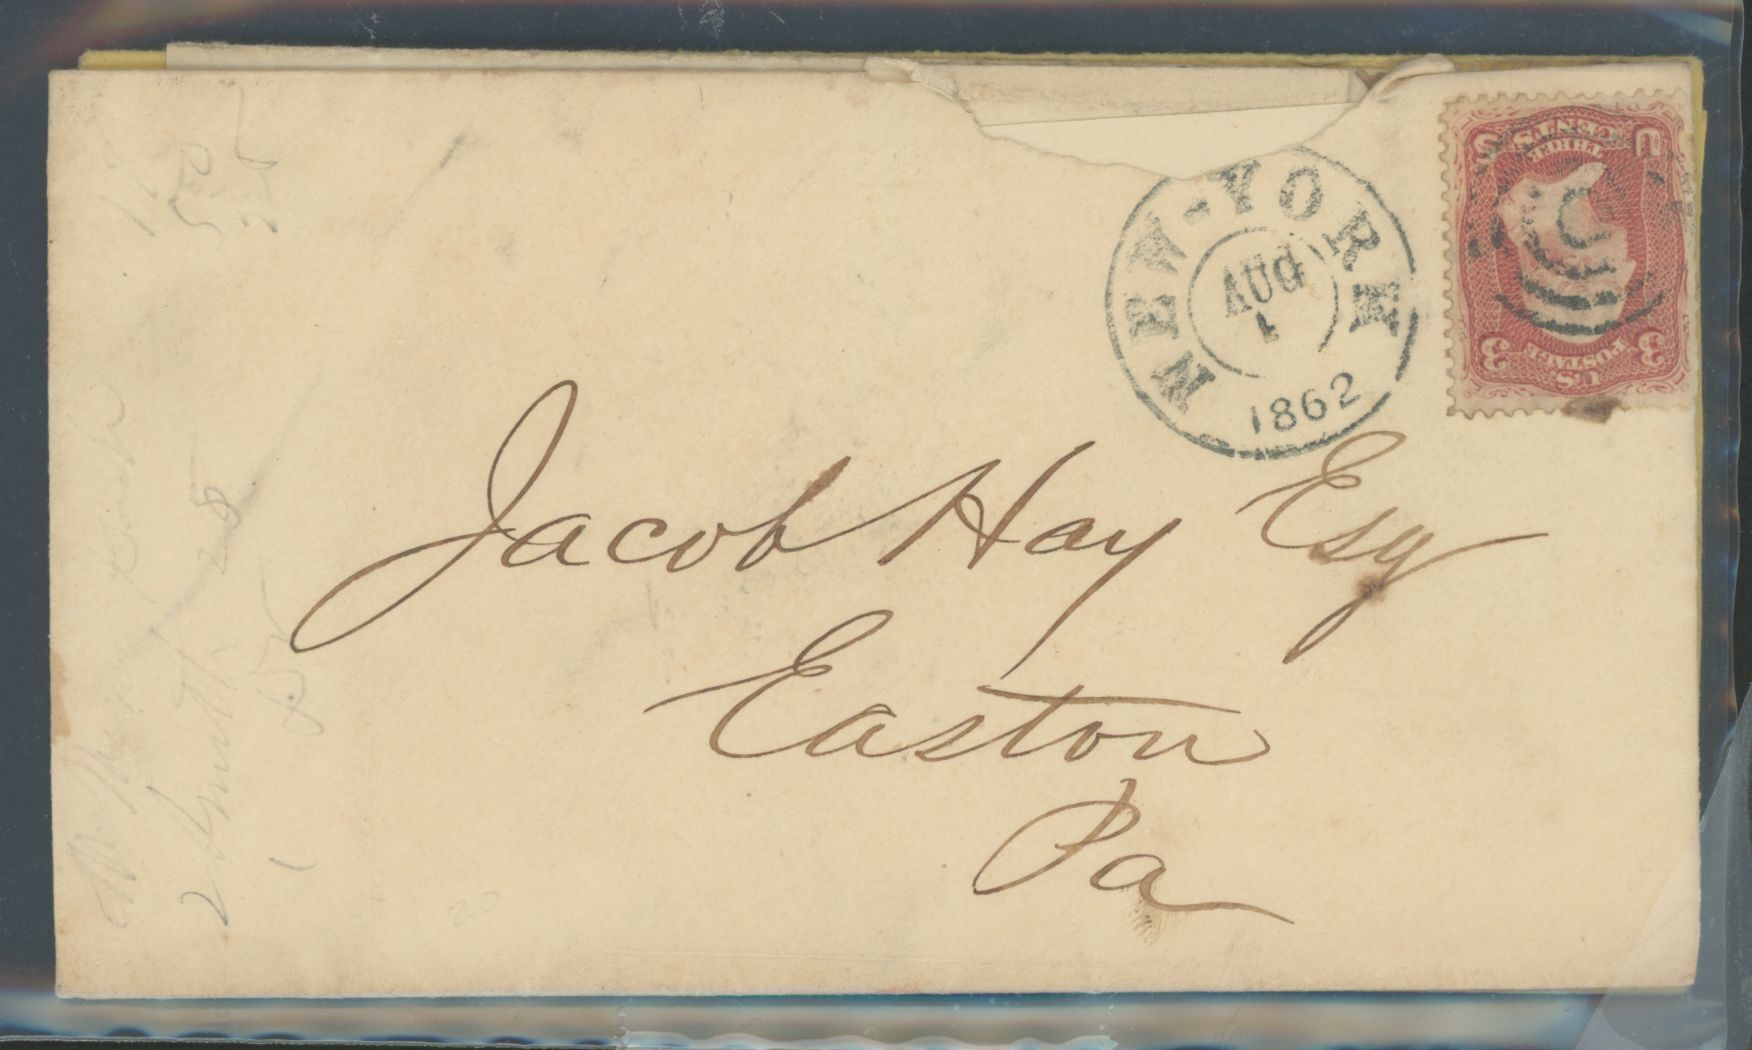 NEW-YORK
AUG
1
1862
U S
THREE
CENTS
3 3
U.S.
POSTAGE
Jacob Hay Esq
Easton
Pa
20